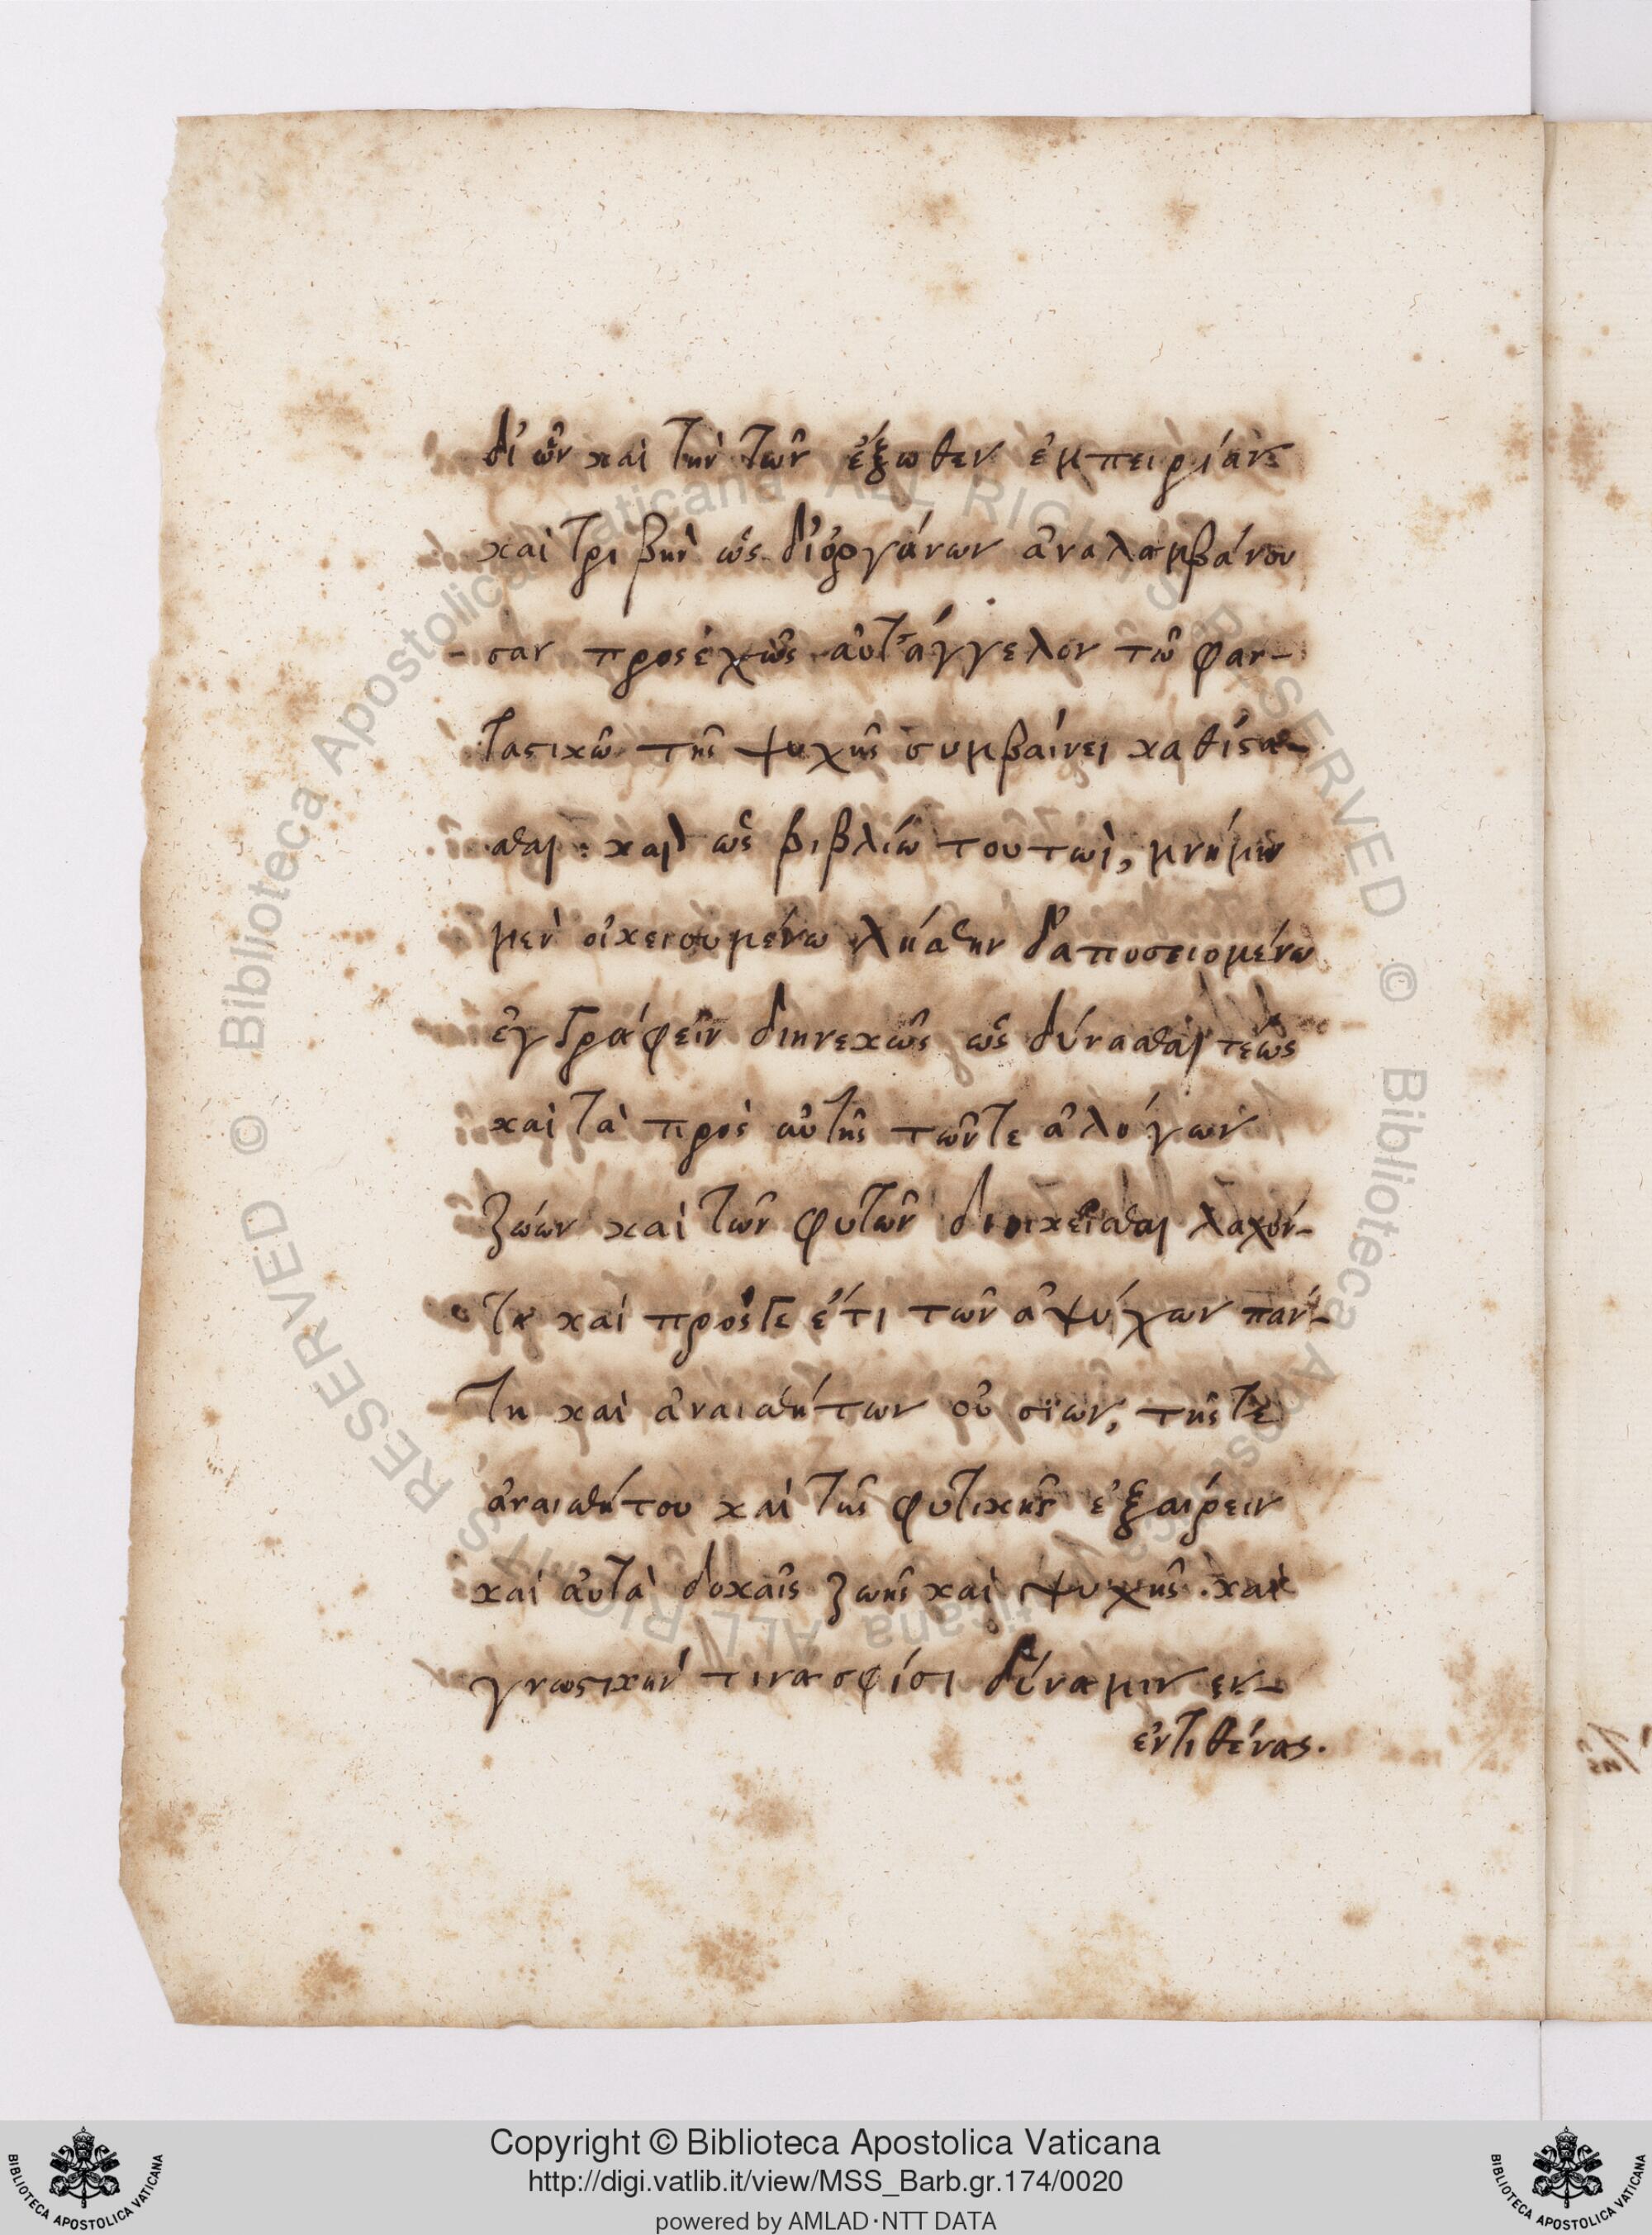 δι' ὧν καὶ τὴν τῶν ἔξωθεν ἐμπειρίαν
καὶ τριβὴν ὡς δι' ὀργάνων ἀναλαμβάνου
-σαν προσεχῶς αὐτάγγελον τῷ φαν-
ταστικῷ τῆς ψυχῆς συμβαίνει καθίστα-
σθαι: καὶ ὡς βιβλίῳ τούτωι, μνήμην
μὲν οἰκειουμένῳ λῆσθιν δ' ἀποσειομένῳ
ἐγγράφειν διηνεκῶς ὡς δύνασθαι τέως
καὶ τὰ πρὸς αὐτῆς τῶν τε ἀλόγων
ζώων καὶ τῶν φυτῶν διοικεῖσθαι λαχόν-
τα καὶ πρός τε ἔτι τῶν ἀψύχων πάν-
τη καὶ ἀναισθήτων οὐσιῶν, τῆς τε
ἀναισθήτου καὶ τῆς φυτικῆς ἐξαίρειν
καὶ αὐτὰ δοκαῖς ζωῆς καὶ ψυχῆς. καὶ
γνωστικήν τινα σφίσι δύναμιν εν-
ἐντιθένας.
Copyright © Biblioteca Apostolica Vaticana
http://digi.vatlib.it/view/MSS_Barb.gr.174/0020
powered by AMLAD·NTT DATA
BIBLIOTECA APOSTOLICA VATICANA
BIBLIOTECA APOSTOLICA VATICANA
© Biblioteca Apostolica Vaticana ALL RIGHTS RESERVED © Biblioteca Apostolica Vaticana ALL RIGHTS RESERVED